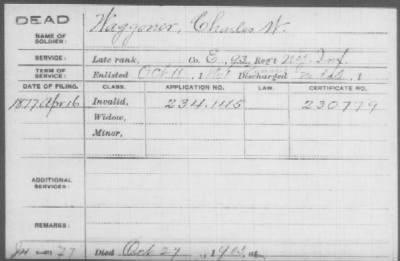 DEAD
NAME OF SOLDIER: Waggoner, Charles W.
SERVICE: Late rank, Co. E, 93, Reg't N.Y. Inf.
TERM OF SERVICE: Enlisted Oct 11, 1861 Discharged , 1
DATE OF FILING. CLASS. APPLICATION NO. LAW. CERTIFICATE NO.
1877 Apr 16 Invalid, 234.1115 230779
Widow,
Minor,
ADDITIONAL SERVICES:
REMARKS:
77 Died Oct 27, 190